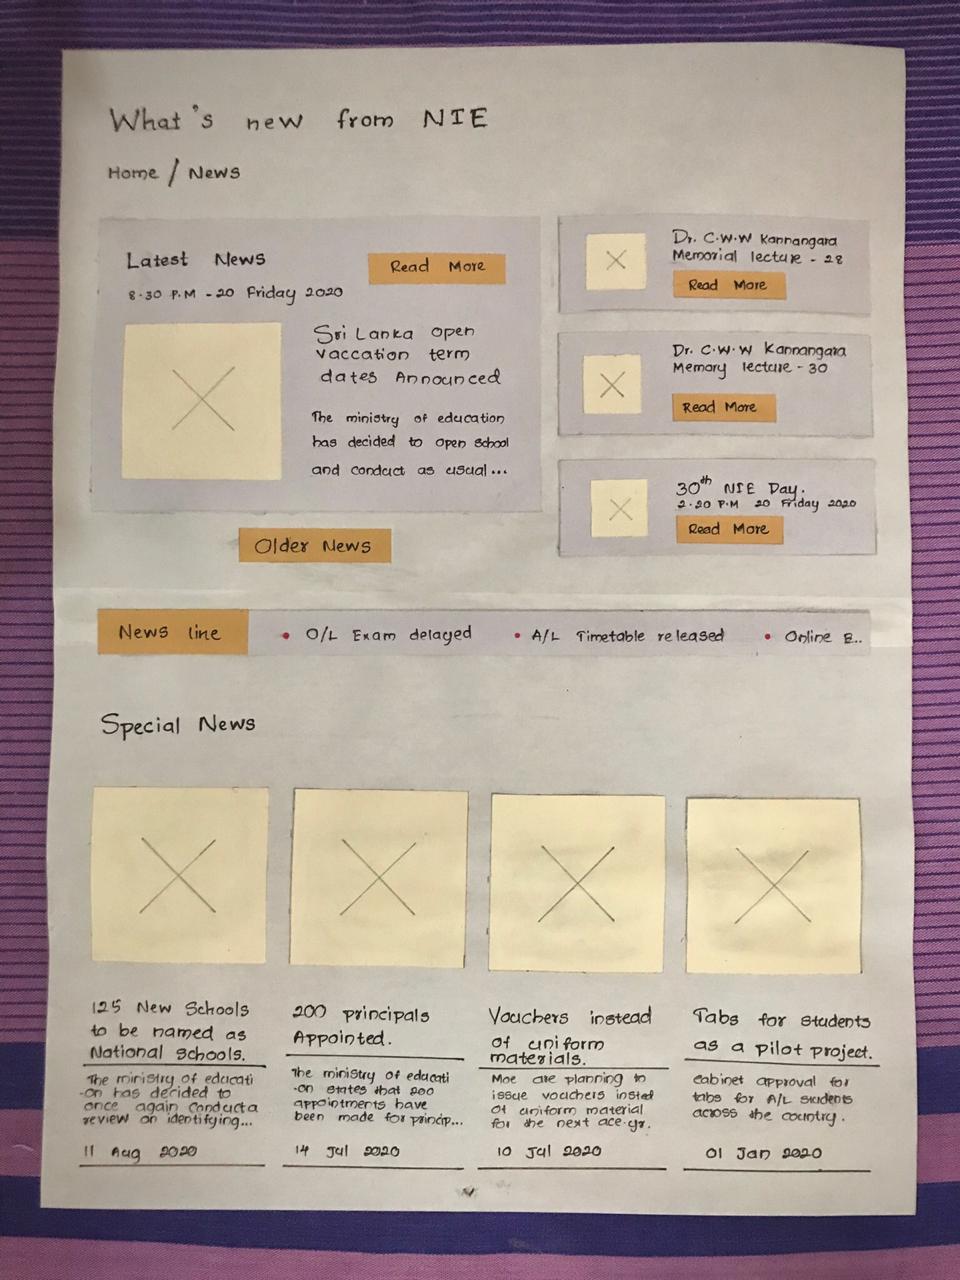 What's new from NIE
Home / News
Latest News
Read More
8.30 P.M - 20 Friday 2020
Sri Lanka open
vaccation term
dates Announced
The ministry of education
has decided to open school
and conduct as usual...
Older News
Dr. C.W.W Kannangara
Memorial lecture - 28
Read More
Dr. C.W.W Kannangara
Memory lecture - 30
Read More
30th NIE Day.
2.20 P.M 20 Friday 2020
Read More
News line
• O/L Exam delayed
• A/L Timetable released
• Online E..
Special News
125 New Schools
to be named as
National schools.
The ministry of educati
-on has decided to
once again conduct a
review on identifying...
11 Aug 2020
200 principals
Appointed.
The ministry of educati
-on states that 200
appointments have
been made for princip...
14 Jul 2020
Vouchers instead
of uniform
materials.
Moe are planning to
issue vouchers insted
of uniform material
for the next ace.yr.
10 Jul 2020
Tabs for students
as a pilot project.
cabinet approval for
tabs for A/L students
across the country.
01 Jan 2020